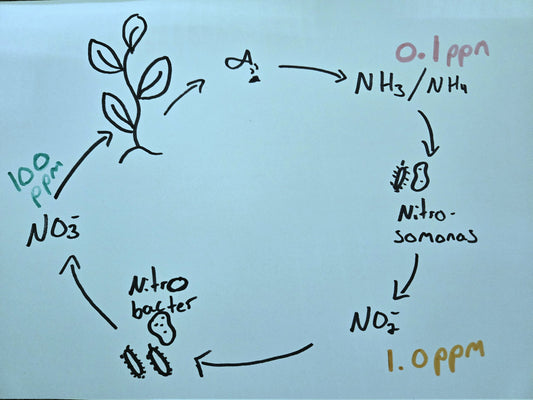 0.1ppm
NH₃/NH₄
Nitro-
somonas
NO₂⁻
1.0ppm
Nitro
bacter
NO₃⁻
100
ppm